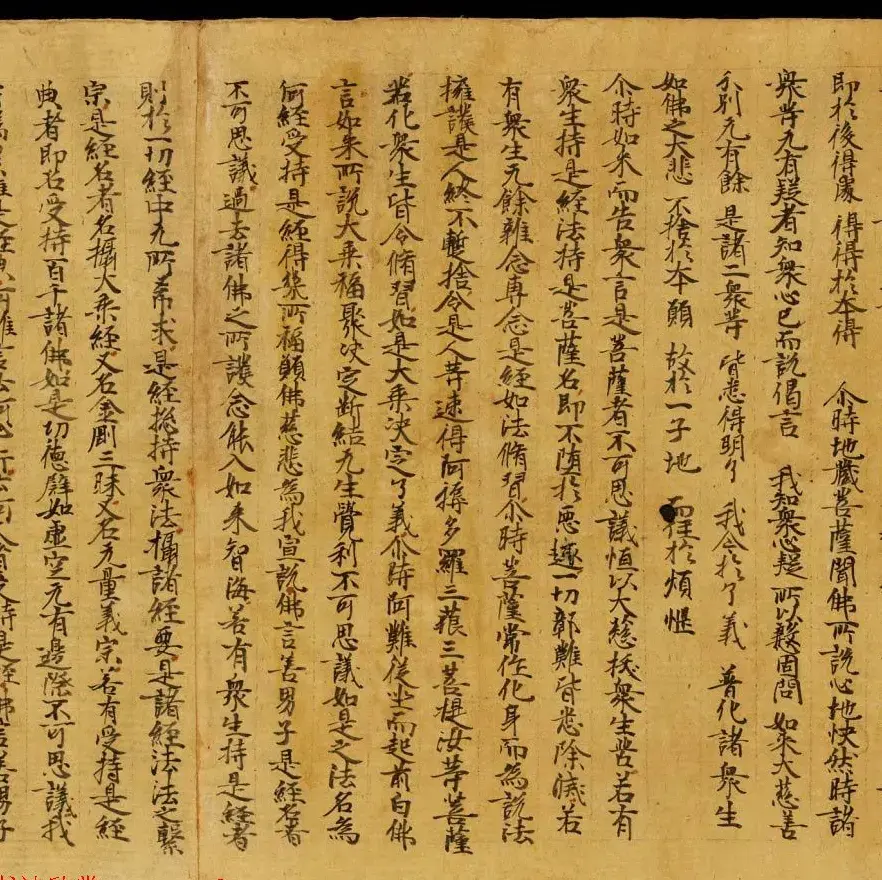 即於後得處 得得於本得 尒時地藏菩薩聞佛所說心地快然時諸
衆等无有疑者知衆心已而說偈言 我知衆心疑 所以慇固問 如來大慈善
分別无有餘 是諸二衆等 皆悉得明了 我今於了義 普化諸衆生
如佛之大悲 不捨於本願 故於一子地 而住於煩惱
尒時如來而告衆言是菩薩者不可思議恒以大慈拔衆生苦若有
衆生持是經法持是菩薩名即不墮於惡趣一切鄣難皆悉除滅若
有衆生无餘雜念專念是經如法脩習尒時菩薩常作化身而為說法
擁護是人終不蹔捨令是人等速得阿耨多羅三藐三菩提汝等菩薩
若化衆生皆令脩習如是大乘決定了義尒時阿難從坐而起前白佛
言如來所說大乘福聚決定斷結无生覺利不可思議如是之法名為
何經受持是經得幾所福願佛慈悲為我宣說佛言善男子是經名者
不可思議過去諸佛之所護念能入如來智海若有衆生持是經者
則於一切經中无所希求是經揔持衆法攝諸經要是諸經法法之繫
宗是經名者名攝大乘經又名金剛三昧又名无量義宗若有受持是經
典者即名受持百千諸佛如是功德譬如虛空无有邊際不可思議我